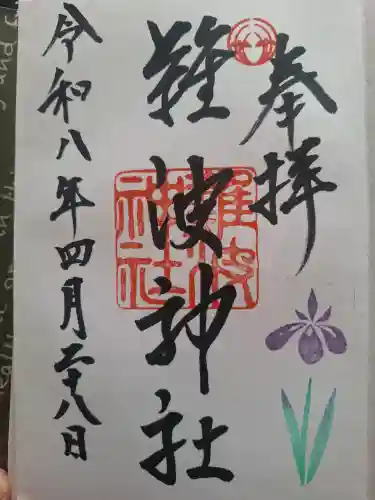 奉拝
難波神社
難波神社
令和八年四月二十八日